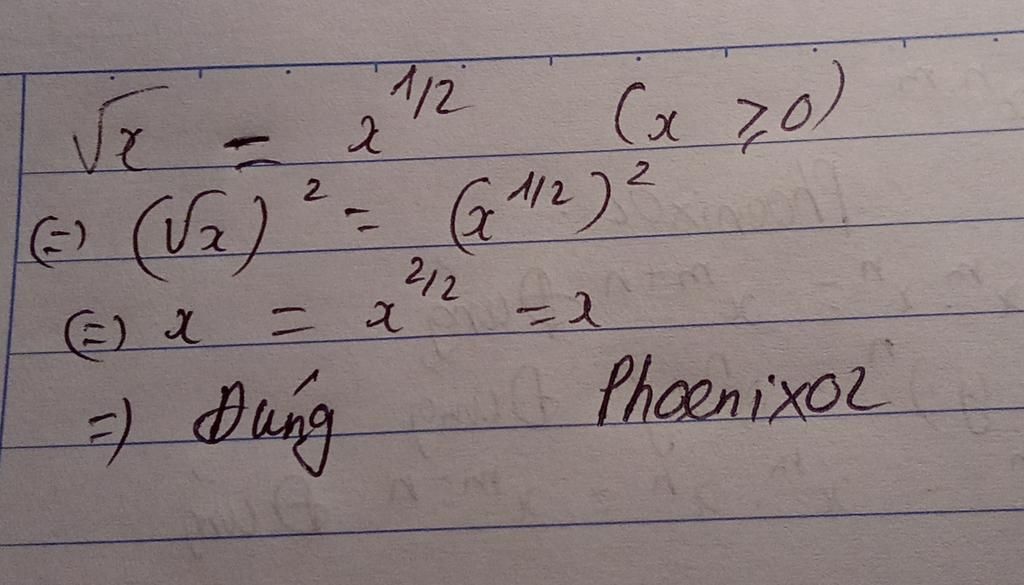 √x = x^1/2 (x ⩾ 0)
(=) (√x)^2 = (x^1/2)^2
(=) x = x^2/2 = x
=) Đúng Phoenix02